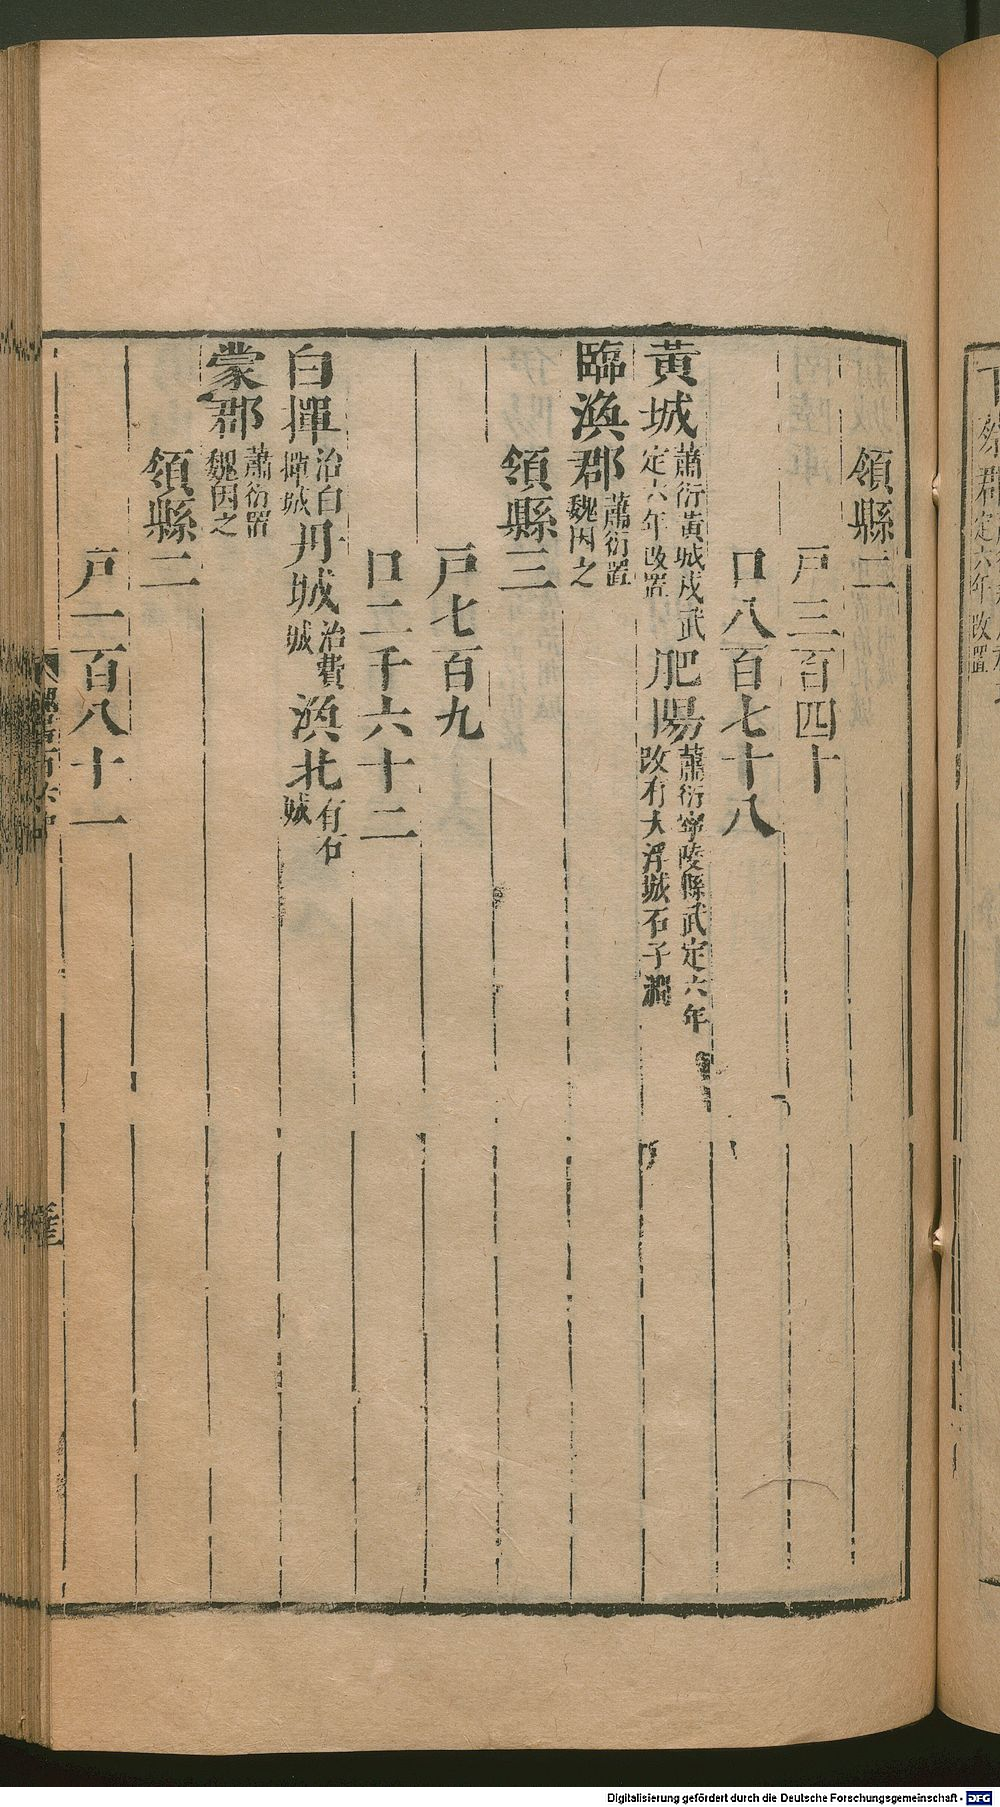 領縣二
戸三百四十
口八百七十八
黃城蕭衍黃城戍武定六年改置肥陽蕭衍寧陵縣武定六年改有大浮城石子澗
臨渙郡蕭衍置魏因之
領縣三
戸七百九
口二千六十二
白撣治白撣城丹城治費城渙北有石城
蒙郡蕭衍置魏因之
領縣二
戸一百八十一
郡定六年改置
Digitalisierung gefördert durch die Deutsche Forschungsgemeinschaft - DFG